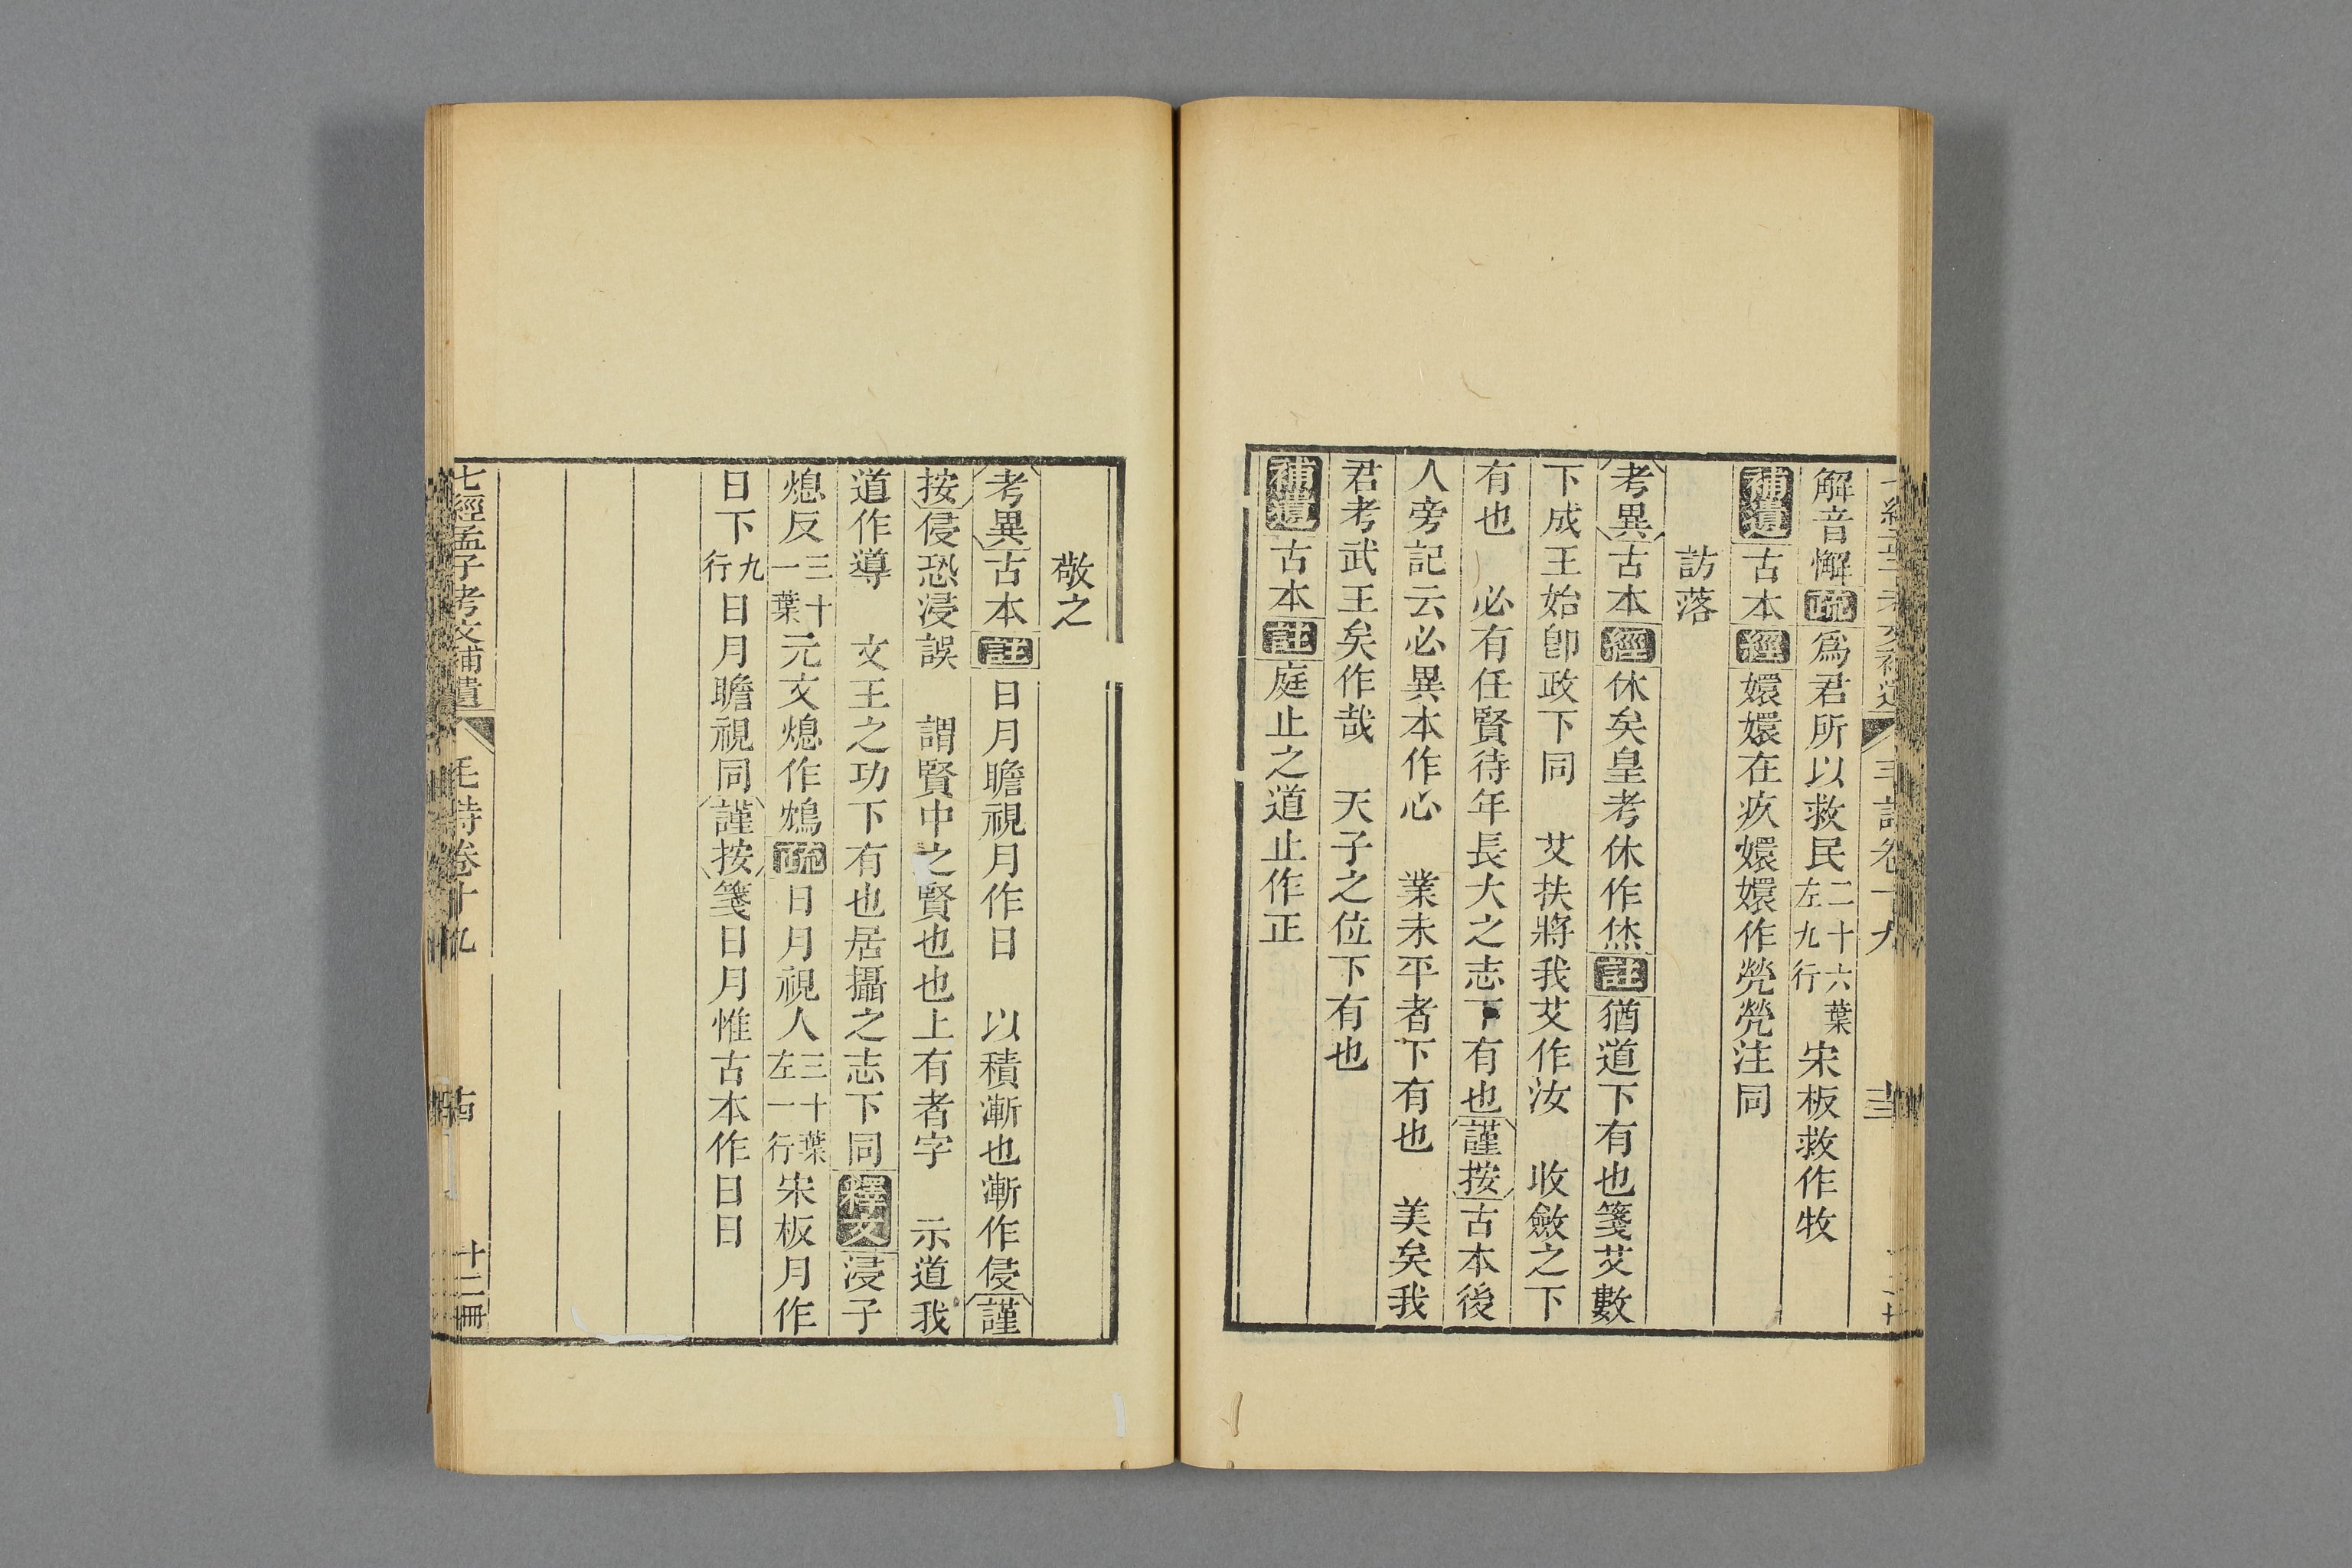 解音懈疏爲君所以救民二十六葉左九行宋板救作牧
補遺古本經嬛嬛在疚嬛嬛作煢煢注同
訪落
考異古本經休矣皇考休作烋註猶道下有也箋艾數
下成王始卽政下同　艾扶將我艾作汝　收斂之下
有也　必有任賢待年長大之志下有也謹按古本後
人旁記云必異本作心　業未平者下有也　美矣我
君考武王矣作哉　天子之位下有也
補遺古本註庭止之道止作正
敬之
考異古本註日月瞻視月作日　以積漸也漸作侵謹
按侵恐浸誤　謂賢中之賢也也上有者字　示道我
道作導　文王之功下有也居攝之志下同釋文浸子
熄反三十一葉元文熄作鴆疏日月視人三十葉左一行宋板月作
日下九行日月瞻視同謹按箋日月惟古本作日日
七經孟子考文補遺　毛詩卷十九　十二冊